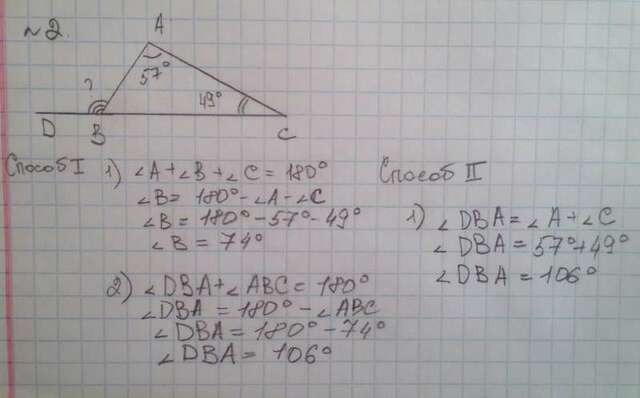 №2.
A
57°
?
49°
D
B
C
Способ I
1) ∠A+∠B+∠C=180°
∠B= 180°-∠A-∠C
∠B=180°-57°-49°
∠B=74°
2) ∠DBA+∠ABC=180°
∠DBA=180°-∠ABC
∠DBA=180°-74°
∠DBA=106°
Способ II
1) ∠DBA=∠A+∠C
∠DBA=57°+49°
∠DBA=106°